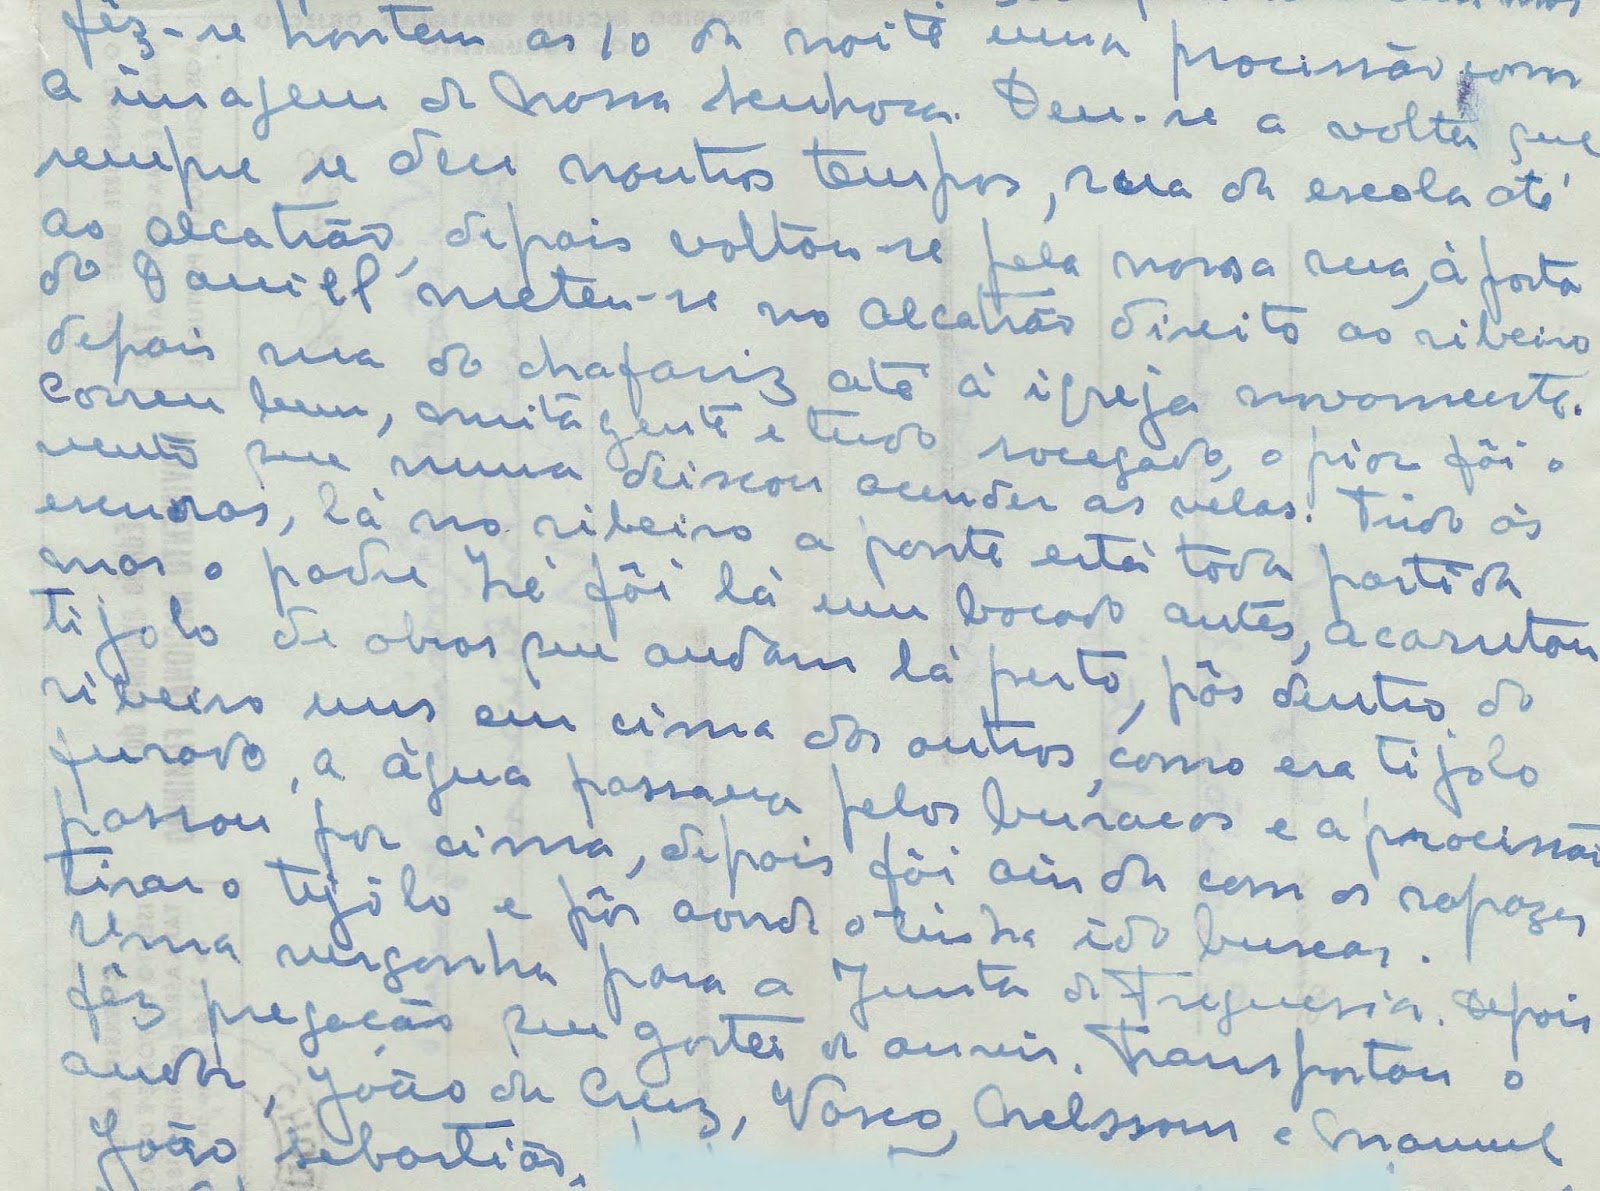 fêz-se hontem as 10 da noite uma procissão com
a imagem de Nossa Senhora. Deu-se a volta que
sempre se deu noutros tempos, rua da escola até
ao alcatrão, depois voltou-se pela nossa rua, à porta
do Daniell meteu-se no alcatrão direito ao ribeiro
depois rua do chafariz até à igreja novamente.
Correu bem, muita gente e tudo socegado, o pior fôi o
vento que nunca deixou acender as velas. Tudo às
escuras, lá no ribeiro a ponte está toda partida
mas o padre Zé fôi lá um bocado antes, acarretou
tijolo de obras que andam lá perto, pôs dentro do
ribeiro uns em cima dos outros, como era tijolo
furado, a água passava pelos buracos e a procissão
passou por cima, depois fôi ainda com os rapazes
tirar o tijôlo e pôs aonde o tinha ido buscar.
Uma vergonha para a Junta de Freguesia. Depois
fêz pregação que gostei de ouvir. Transportou o
andor, João da Cruz, Vasco, Nelssom e Manuel
João Sebastião.